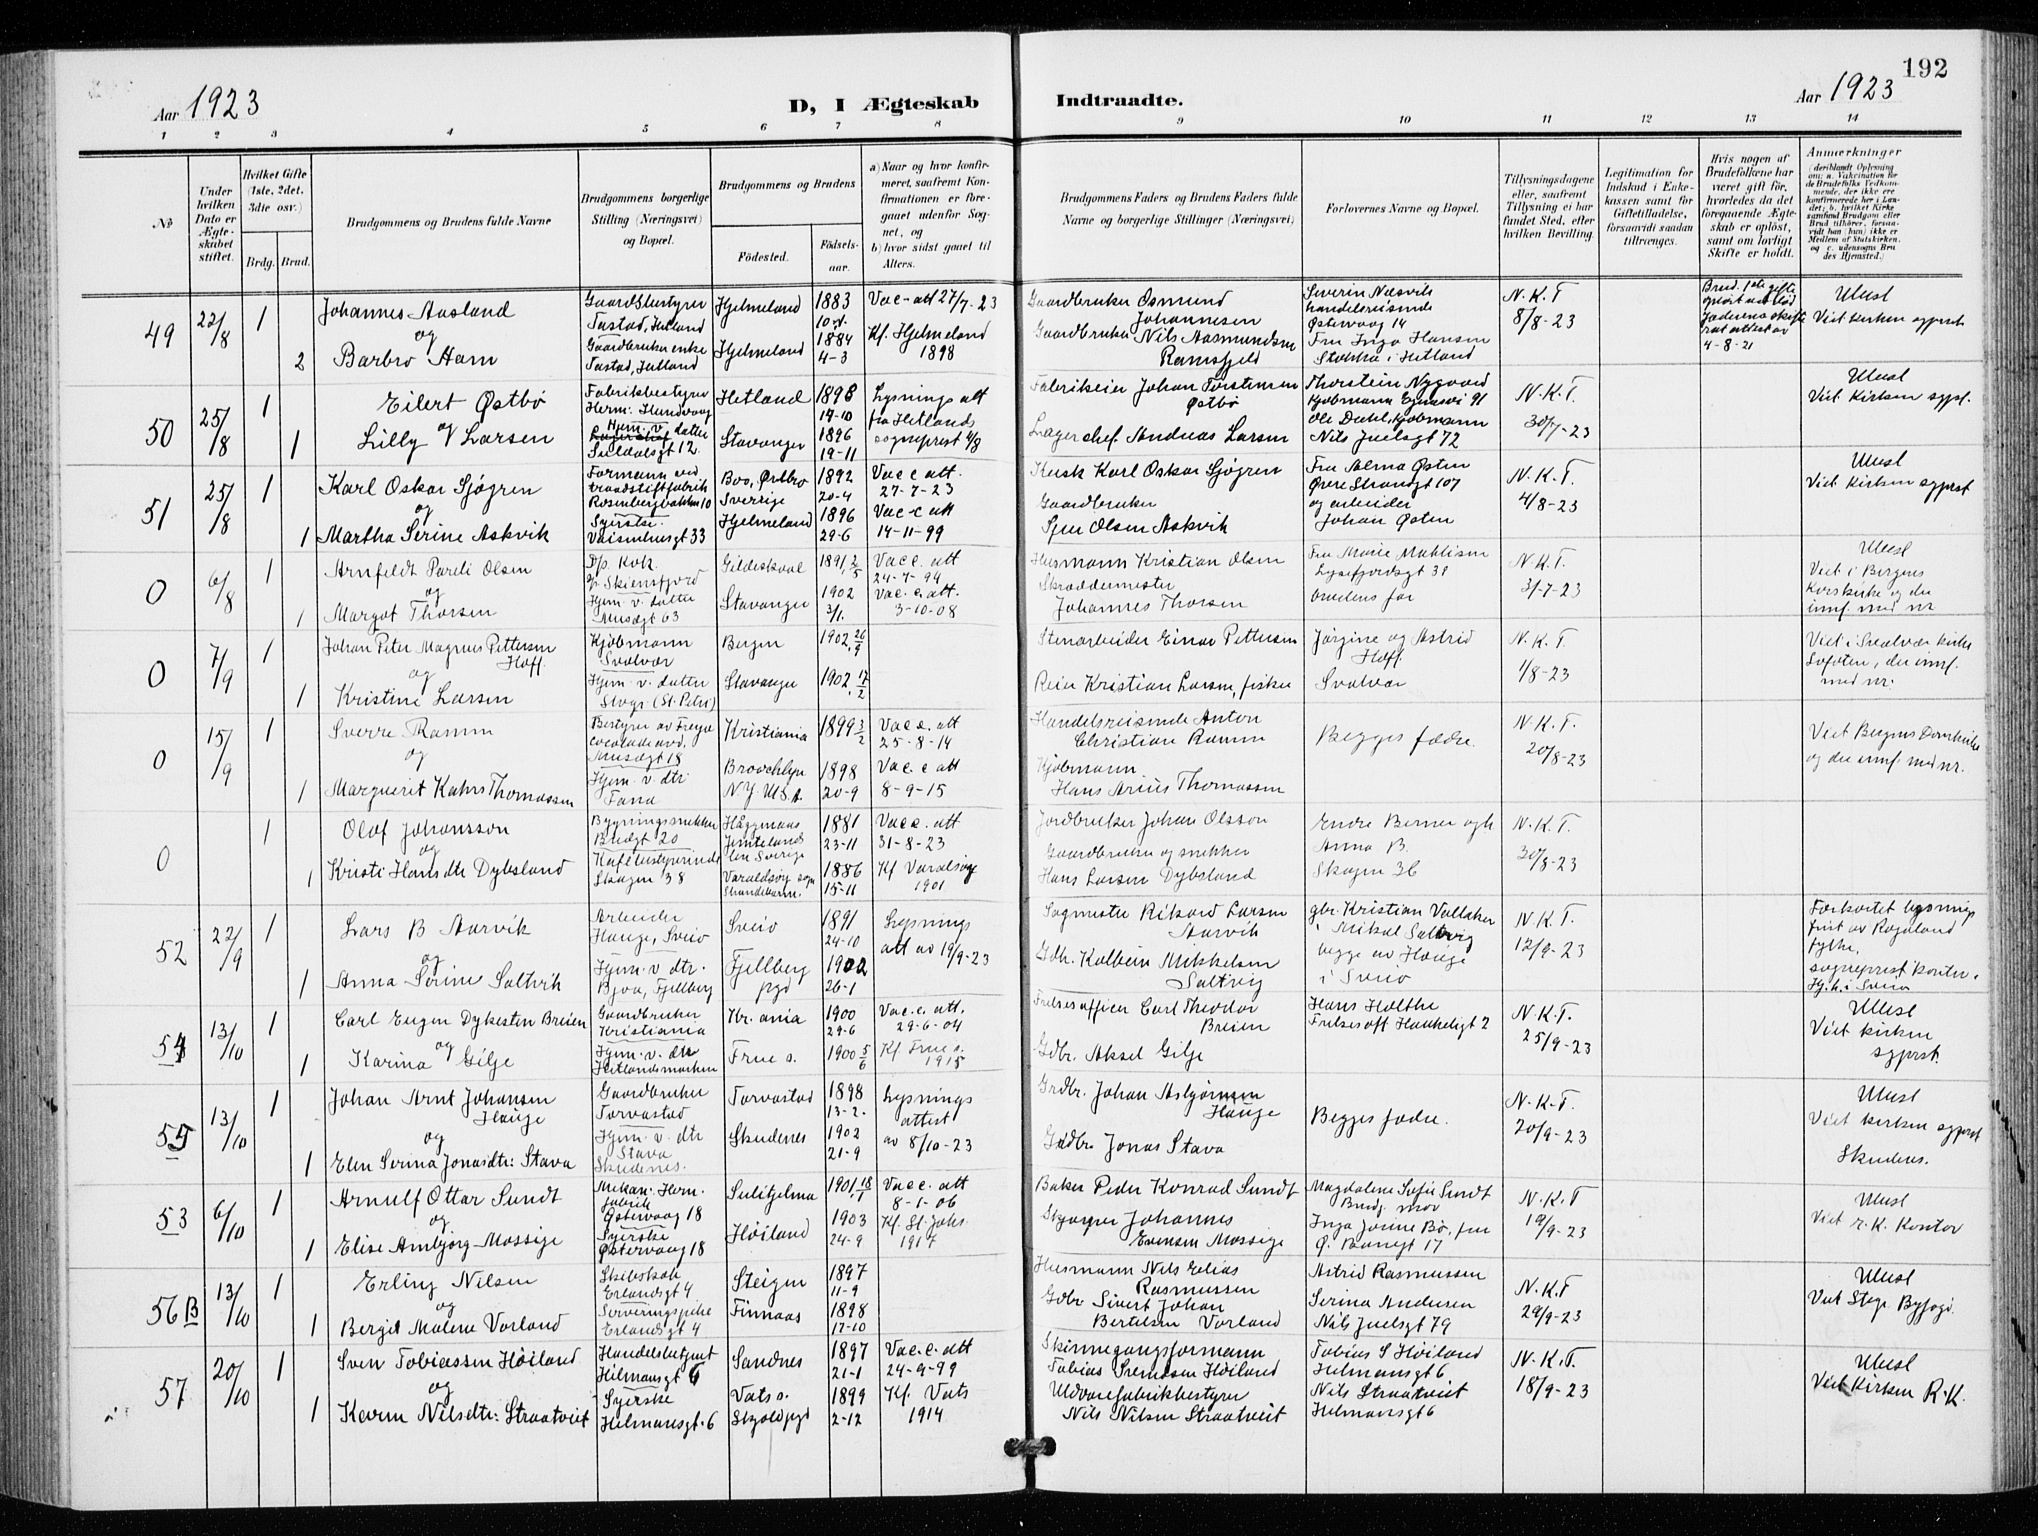 192
Aar 1923
D, I Ægteskab Indtraadte.
Aar 1923
1 2 3 4 5 6 7 8 9 10 11 12 13 14
No
Under hvilken Dato er Ægteskabet stiftet.
Hvilket Gifte (1ste, 2det, 3die osv.)
Brdg. Brud.
Brudgommens og Brudens fulde Navne
Brudgommens borgerlige Stilling (Næringsvei) og Bopæl.
Brudgommens og Brudens
Födested. Födselsaar.
a) Naar og hvor konfirmeret, saafremt Konfirmationen er foregaaet udenfor Sognet, og
b) hvor sidst gaaet til Alters.
Brudgommens Faders og Brudens Faders fulde Navne og borgerlige Stillinger (Næringsvei)
Forlovernes Navne og Bopæl.
Tillysningsdagene eller, saafremt Tillysning ei har fundet Sted, efter hvilken Bevilling.
Legitimation for Indskud i Enkekassen samt for Giftetilladelse, forsaavidt saadan tiltrænges.
Hvis nogen af Brudefolkene har været gift før, hvorledes da det foregaaende Ægteskab er oplöst, samt om lovligt Skifte er holdt.
Anmærkninger
(deriblandt Oplysning om: a. Vakcination for de Brudefolks Vedkommende, der ikke ere konfirmerede her i Landet; b. hvilket Kirkesamfund Brudgom eller Brud tilhörer, forsaavidt han (hun) ikke er Medlem af Statskirken, og c. udensogns Brudes Hjemsted.)
49 22/8 1 Johannes Aasland Gaardsbestyrer Tastad, Hetland Hjelmeland 1883 Vac-att 27/7-23 Gaardbruker Osmund Johannesen Severin Næsvik handelsreisende Østervaag 14 N.K.T. 8/8-23 Ulest Viet kirken sgprst
og
2 Barbro Ham Gaardbruker enke Tastad, Hetland Hjelmeland 1884 4-3 Kf. Hjelmeland 1898 Gaardbruker Nils Aasmundsen Ramsfjeld Fru Inga Hansen Stokka i Hetland 4-8-21
50 25/8 1 Eilert Østbø Fabrikbestyrer Herm. Hetland 1898 14-10 Lysnings att fra Hetlands sogneprest Fabrikeier Johan Torstensen Østbø Thorstein Nygaard Kjøbmann N.K.T. 30/7-23 Ulest Viet Kirken sgpst.
og
1 Lilly Larsen Hjem. v. datter Suldalsgt 12 Stavanger 1896 19-11 Lagerchef. Andreas Larsen Ole Dahl, Kjøbmann Nils Juelsgt 72
51 25/8 1 Karl Oskar Sjøgren Formann ved traadstiftfabrik Rosenbergbakken 10 Boo, Ørebro Sverige 1892 20-4 Vacc att. 27-7-23 Kusk Karl Oskar Sjøgren Fru Alma Østen Øvre Strandgt 107 N.K.T. 4/8-23 Ulest Viet Kirken sgprst
og
1 Martha Serine Askvik Syerske. Vaisenhusgt 33 Hjelmeland 1896 29-6 Vac-c att 14-11-99 Gaardbruker Olsen Askvik og arbeider Johan Østen
0 6/8 1 Arnfeldt Pareli Olsen D/p. Kok. Skiensfjord Gildeskaal 1891, 2/5 Vacc. att 24-7-94 Husmann Kristian Olsen Fru Marie Mathisen Lysefjordsgt 31 N.K.T. 31-7-23 Ulest Viet i Bergens Korskirke og der innf. med nr
og
1 Margot Thorsen Hjem. v. datter 63 Stavanger 1902 3/1. Vac.c. att. 3-10-08 Skræddermester Johannes Thorsen brudens far
0 7/9 1 Johan Peter Magnus Pettersen Hoff. Kjøbmann Svolvær Bergen 1902, 26/9 Stenarbeider Einar Pettersen Jørgine og Astrid Hoff. N.K.T. 1/8-23 Viet i Svolvær kirke Lofoten, der innf. med nr.
og
1 Kristine Larsen Hjem. v. datter Stvgr. (St. Petri) Stavanger 1902, 17/2 Reier Kristian Larsen, fisker Svolvær
0 15/9 1 Sverre Ramm Bestyrer av Freya 18 Kristiania 1899 3/2 Vac c. att 25-8-14 Handelsreisende Anton Christian Ramm Begges fædre. N.K.T. 20/8-23 Viet Bergens Domkirke og der innf. med nr.
og
1 Marguerit Kahrs Thomassen Hjem. v. dtr Fana Broochlyn N.Y. U.S.A. 1898 20-9 Vac. c att 8-9-15 Kjøbmann Hans Arius Thomassen
0 1 Olof Johansson Bygningssnekker 20 Sverige 1881 23-11 Vacc. att 31-8-23 Jordbruker Johan Olsson Endre Berner og Anna B. N.K.T. 30/8-23
og
1 Kristi Hansdtr Dybsland Kafébestyrerinde Skagen 38 Varaldsøy sogn Strandebarm. 1886 15-11 Kf Varaldsøy 1901 Gaardbruker og snekker Hans Larsen Dybsland Skagen 36
52 22/9 1 Lars B Aarvik Arbeider Hauge, Sveio Sveio 1891 24-10 Lysnings att av 19/9-23 Sagmester Rikard Larsen Aarvik gbr. Kristian Vallaker i Mikal Saltvig begge av Hauge i Sveio N.K.T. 12/9-23 Forkortet lysnings frist av Rogaland fylke. sogneprest kontor. i Sveio
og
1 Anna Serine Saltvik Hjem. v. dtr. Bjoa, Fjellberg Fjellberg pgd 1902 26-1 Gdbr. Kolbein Mikkelsen Saltvig
54 13/10 1 Carl Eugen Dykesten Breien Gaardbruker Kristiania Kr.ania 1900 29-6 Vac.c. att. 29-6-04 Frelsesofficer Carl Theodor Breien Hans Holthe Frelsesoff Haukeligt 2 N.K.T. 25/9-23 Ulest Viet kirken sgprst.
og
1 Karina Gilje Hjem. v. dtr Hetlandsmarken Frue s. 1900 5/6 Kf Frue s. 1915 Gdbr. Aksel Gilje
55 13/10 1 Johan Arnt Johansen Hauge Gaardbruker Torvastad Torvastad 1898 13-2. Lysnings attest av 8/10-23 Grdbr. Johan Asbjørnsen Hauge Begges fædre. N.K.T. 20/9-23 Ulest Viet kirken sgprst Skudenes.
og
1 Elen Serina Jonasdtr: Stava Hjem. v. dtr Stava Skudenes. Skudenes 1902 21-9 Grdbr. Jonas Stava
53 6/10 1 Arnulf Ottar Sundt Mekan. Herm. fabrik Østervaag 18 Sulitjelma 1901, 18/1 Vacc. att 8-1-06 Baker Peder Konrad Sundt Magdalene Sofie Sundt Brudg. mor N.K.T 19/9-23 Ulest Viet r.K. Kontor
og
1 Elise Ambjørg Mossige Syerske Østervaag 18 Höiland 1903 24-9 Kf. St. Joh. 1917 Johannes Evensen Mossige Inga Jorine Bø, fru Ø. Banegt 17
56 B 13/10 1 Erling Nilsen Skibskok Erlandsgt 4 Steigen 1897 11-9 Husmann Nils Elias Rasmussen Astrid Rasmussen N.K.T 29/9-23 Ulest Viet Stvgr Byfogd.
og
1 Bergit Malene Vorland Serveringspike Erlandsgt 4 Finnaas 1898 17-10 Gdbr Sivert Johan Bertelsen Vorland Serina Andersen Nils Juelsgt 79
57 20/10 1 Sven Tobiassen Höiland Handelsbetjent Hilmansgt 6 Sandnes 1897 21-1 Vac.c. att 24-9-99 Skinnegangsformann Tobias Svendsen Höiland Tobias S Höiland Helmansgt 6 N.K.T. 18/9-23 Ulest Viet Kirken R.K.
og
1 Karen Nilsdtr: Straatveit Syerske Helmansgt. 6 Vats s. Skjoldpgd 1899 2-12 Kf. Vats 1914 Uldvarefabrikbestyrer Nils Nilsen Straatveit Nils Straatveit Helmansgt 6